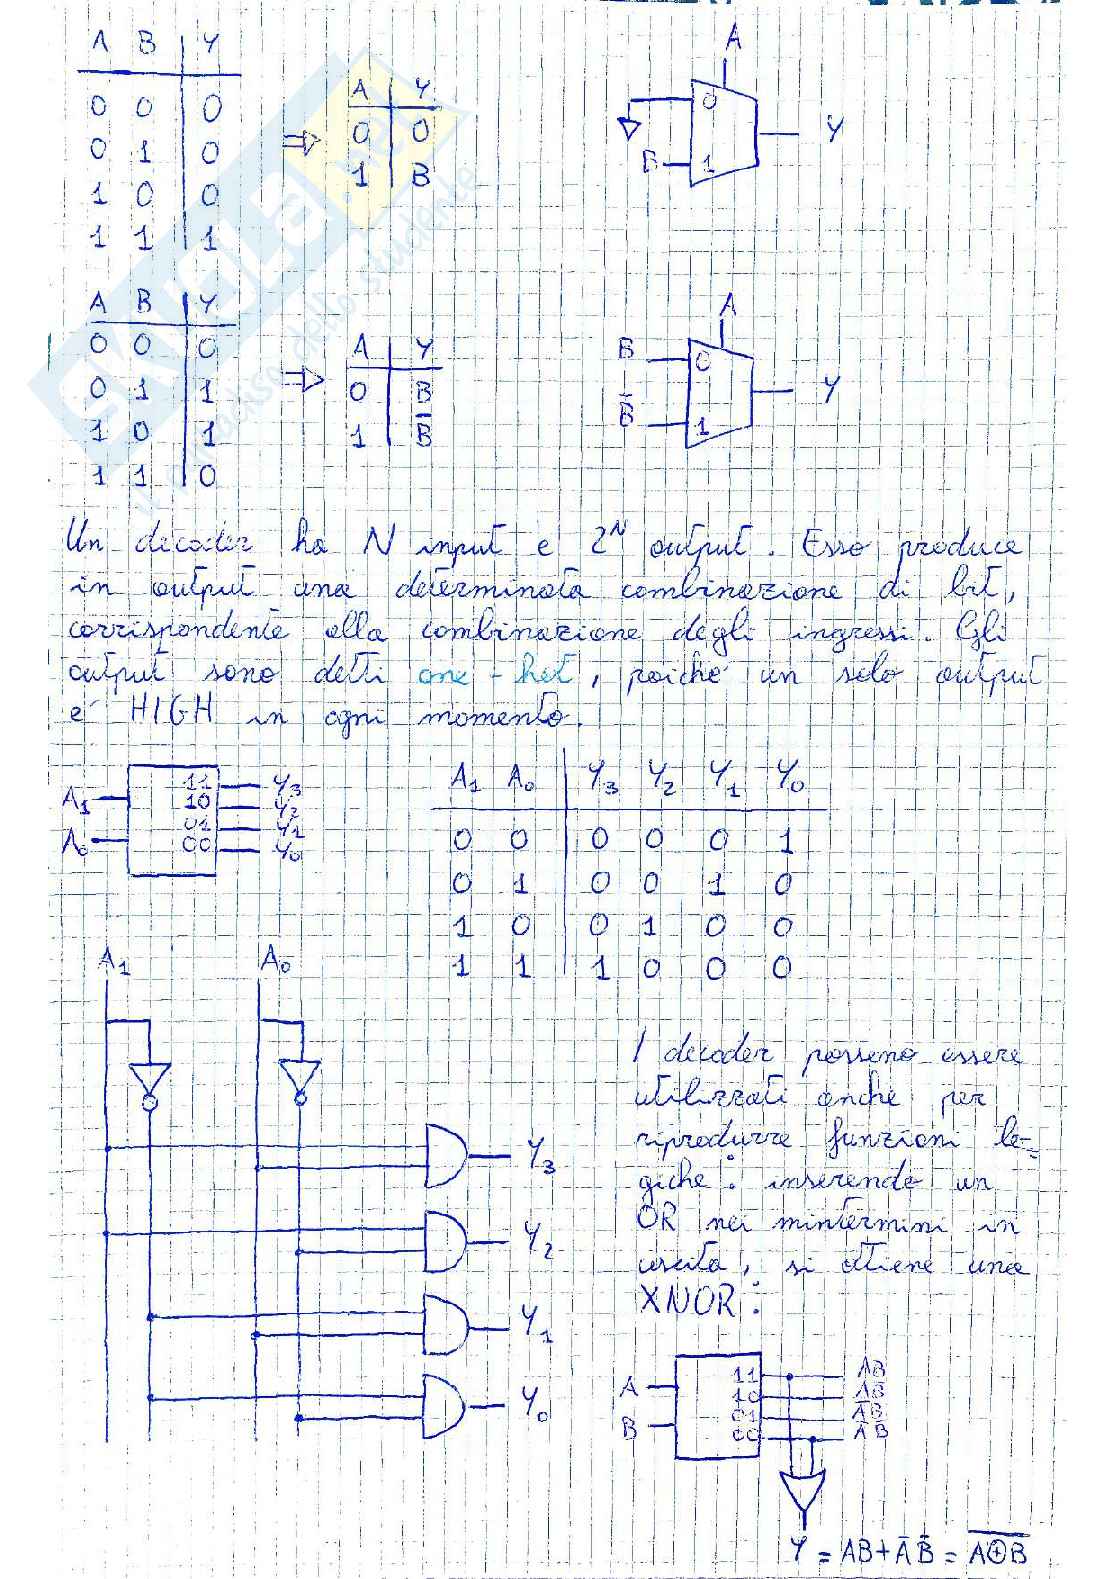 A B Y
0 0 0
0 1 0
1 0 0
1 1 1
A Y
0 0
1 B
A
0
B 1
Y
A B Y
0 0 0
0 1 1
1 0 1
1 1 0
A Y
0 B
1 B̅
A
B 0
B̅ 1
Y
Un decoder ha N input e 2ᴺ output. Esso produce
in output una determinata combinazione di bit,
corrispondente alla combinazione degli ingressi. Gli
output sono detti one-hot, poiché un solo output
e' HIGH in ogni momento.
A₁ 11 Y₃
10 Y₂
01 Y₁
A₀ 00 Y₀
A₁ A₀ Y₃ Y₂ Y₁ Y₀
0 0 0 0 0 1
0 1 0 0 1 0
1 0 0 1 0 0
1 1 1 0 0 0
A₁ A₀
Y₃
Y₂
Y₁
Y₀
I decoder possono essere
utilizzati anche per
riprodurre funzioni lo-
giche: inserendo un
OR nei mintermini in
uscita, si ottiene una
XNOR:
A 11 AB
10 AB̅
B 01 A̅B
00 A̅B̅
Y = AB + A̅ B̅ = \overline{A⊕B}
SKUOLA.net
il paradiso dello studente